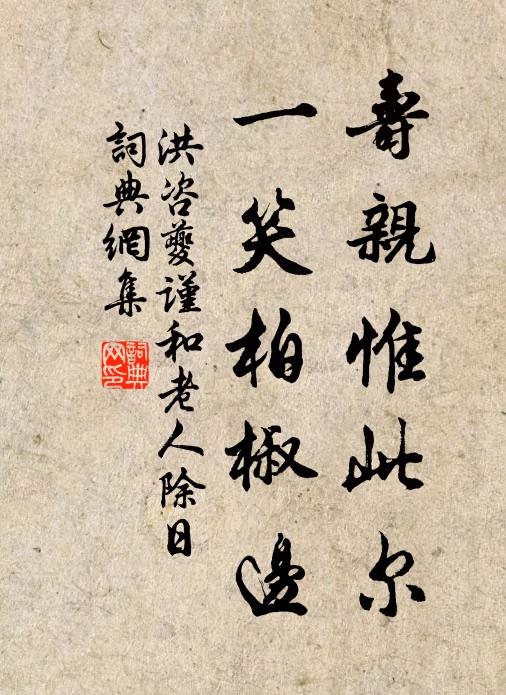 壽親惟此尔
一笑柏椒邊
洪咨夔謹和老人除日
詞典網集
詞典網印